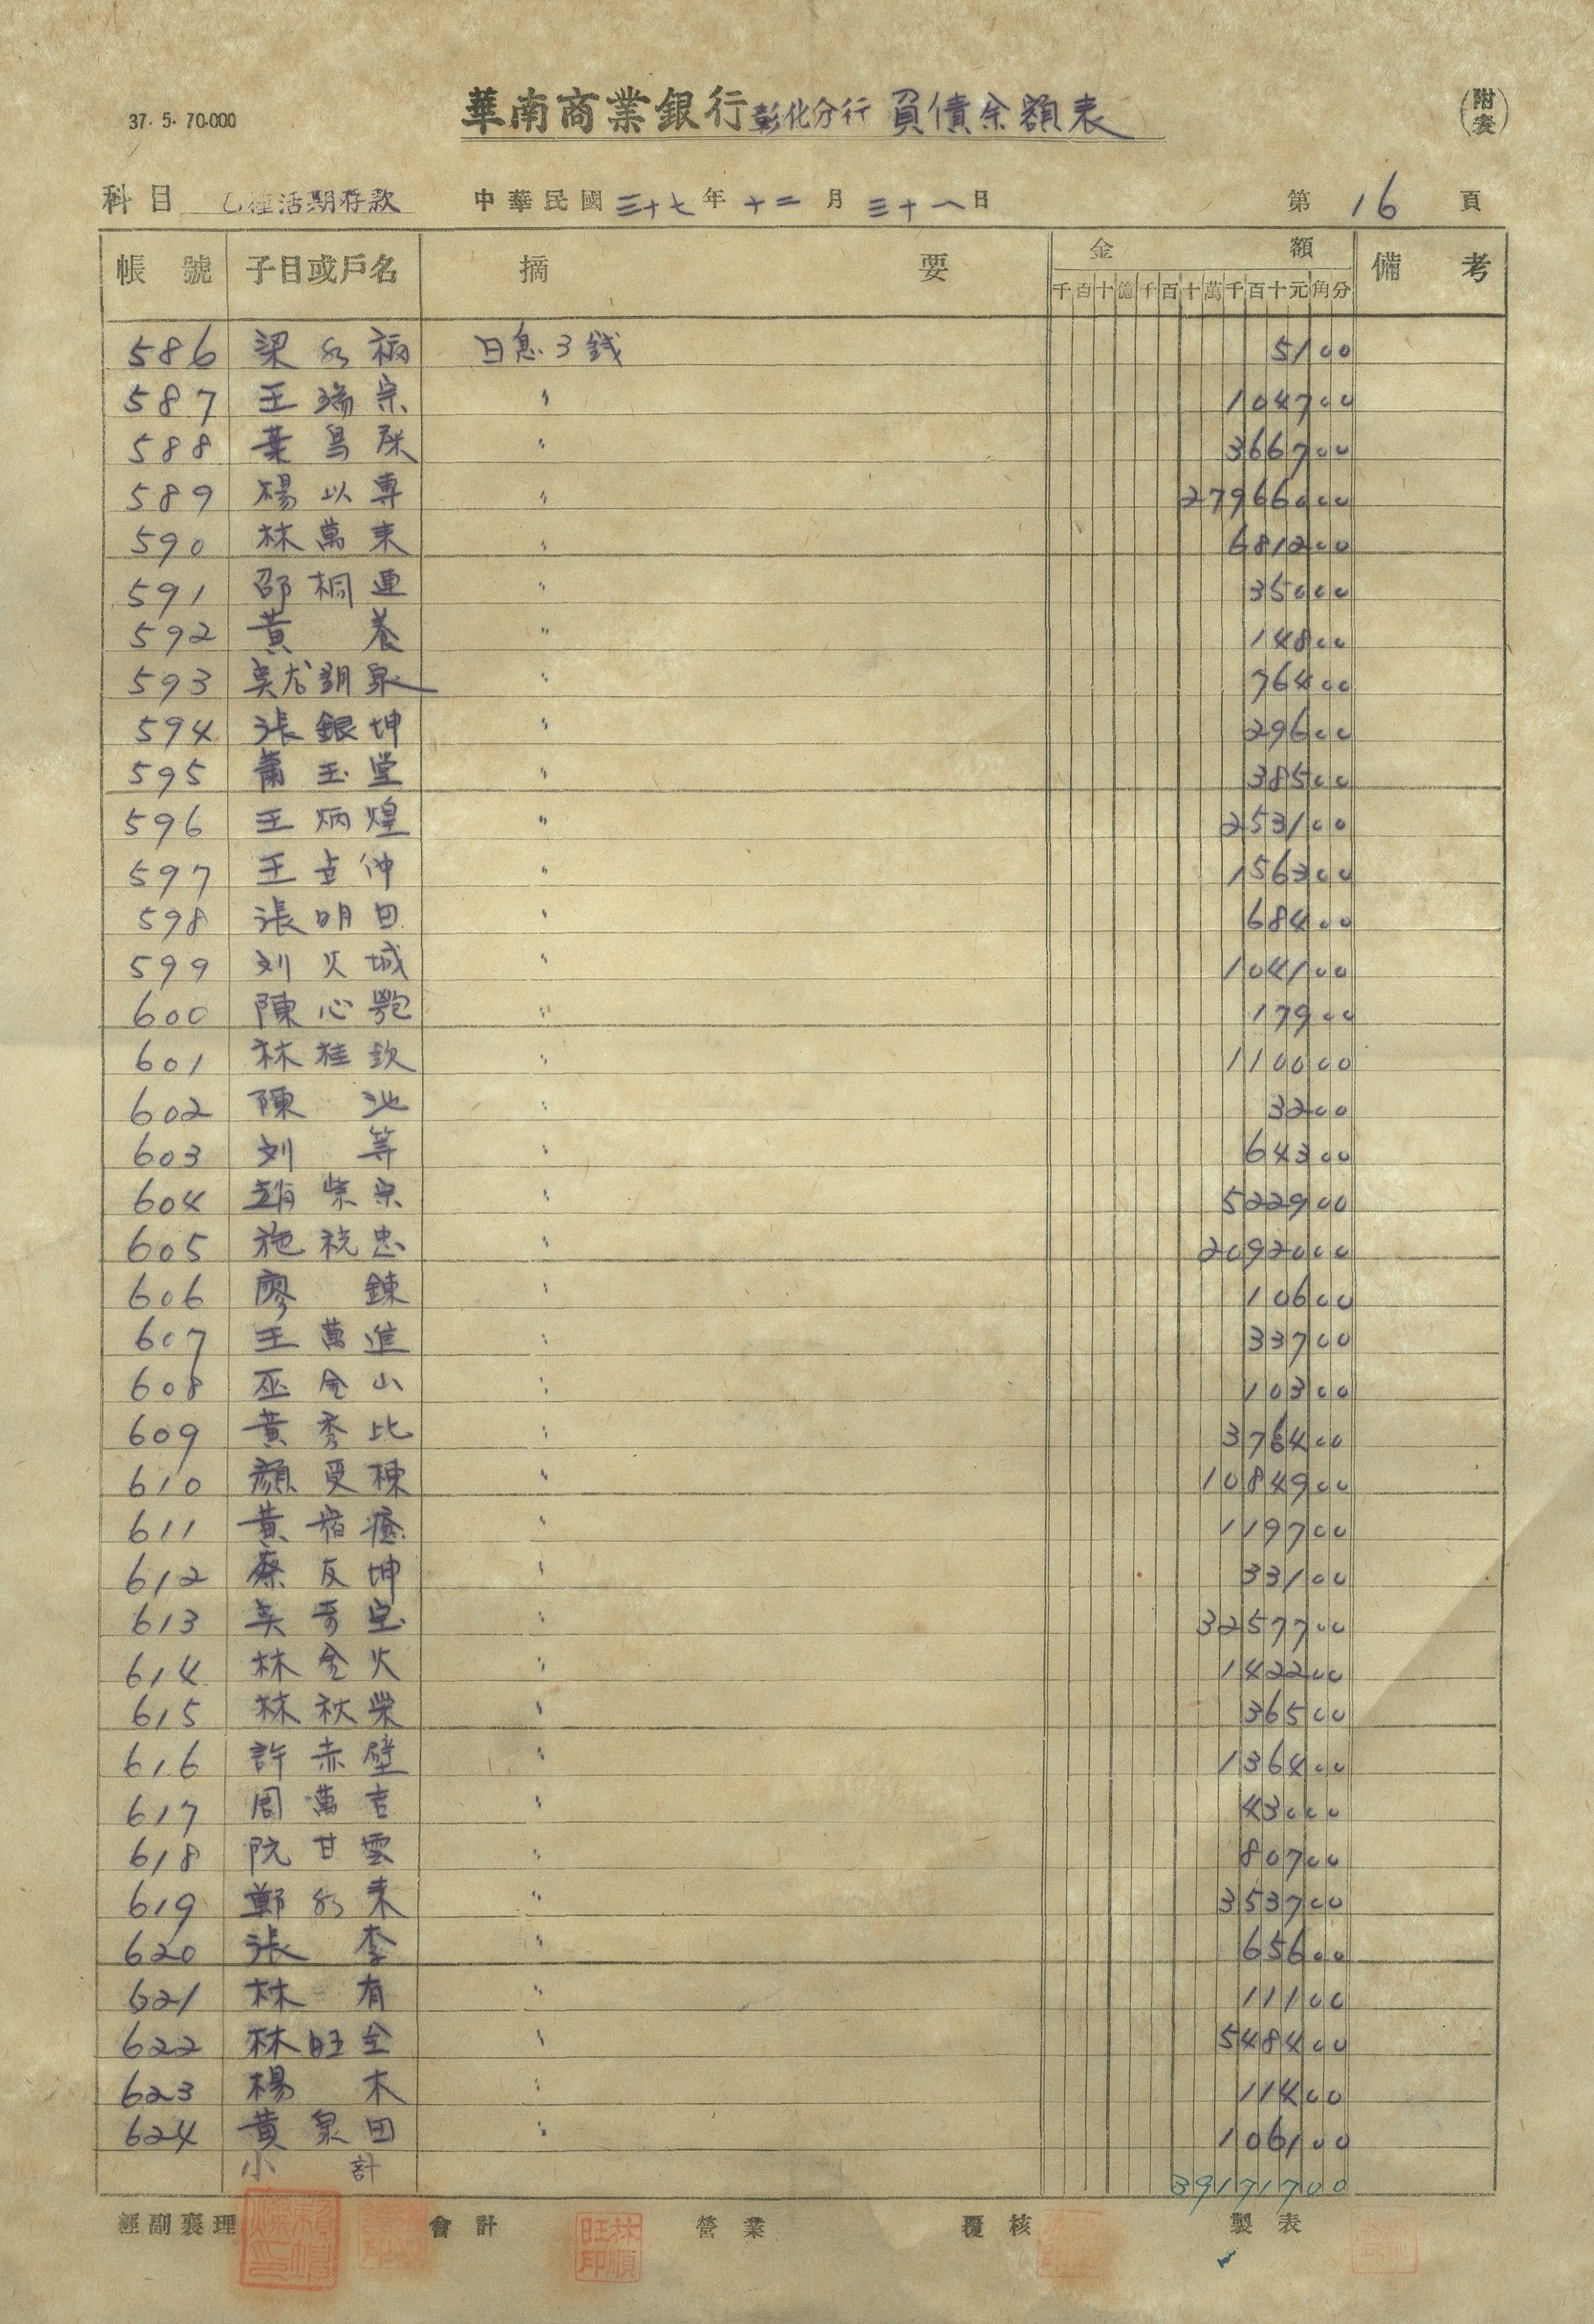 37. 5. 70.000
華南商業銀行彰化分行 負債余額表
(附表)
科目 乙種活期存款 中華民國三十七年十二月三十一日 第16頁
帳號 子目或戶名 摘要 金額 備考
千百十億千百十萬千百十元角分
586 梁 福 日息3錢 5100
587 王瑞宗 〃 104700
588 葉 〃 366700
589 楊以專 〃 27966000
590 林萬来 〃 681200
591 邵桐連 〃 35000
592 黃養 〃 14800
593 吳 泉 〃 76400
594 張銀坤 〃 29600
595 蕭玉堂 〃 38500
596 王炳煌 〃 253100
597 王 仲 〃 156300
598 張明田 〃 68400
599 刘火城 〃 104100
600 陳心 〃 17900
601 林桂欽 〃 110000
602 陳池 〃 3200
603 刘等 〃 64300
604 趙 宗 〃 522900
605 施 忠 〃 2092000
606 廖錬 〃 10600
607 王萬進 〃 33700
608 巫金山 〃 10300
609 黃秀比 〃 376400
610 顏 棟 〃 1084900
611 黃 〃 119700
612 蔡友坤 〃 33100
613 吳 〃 3257700
614 林金火 〃 142200
615 林秋栄 〃 36500
616 許赤壁 〃 136400
617 周萬吉 〃 43000
618 阮甘雲 〃 80700
619 鄭 来 〃 353700
620 張李 〃 65600
621 林有 〃 11100
622 林旺全 〃 548400
623 楊木 〃 11400
624 黃泉田 〃 106100
小計 39171700
經副襄理 會計 營業 覆核 製表
林順旺印